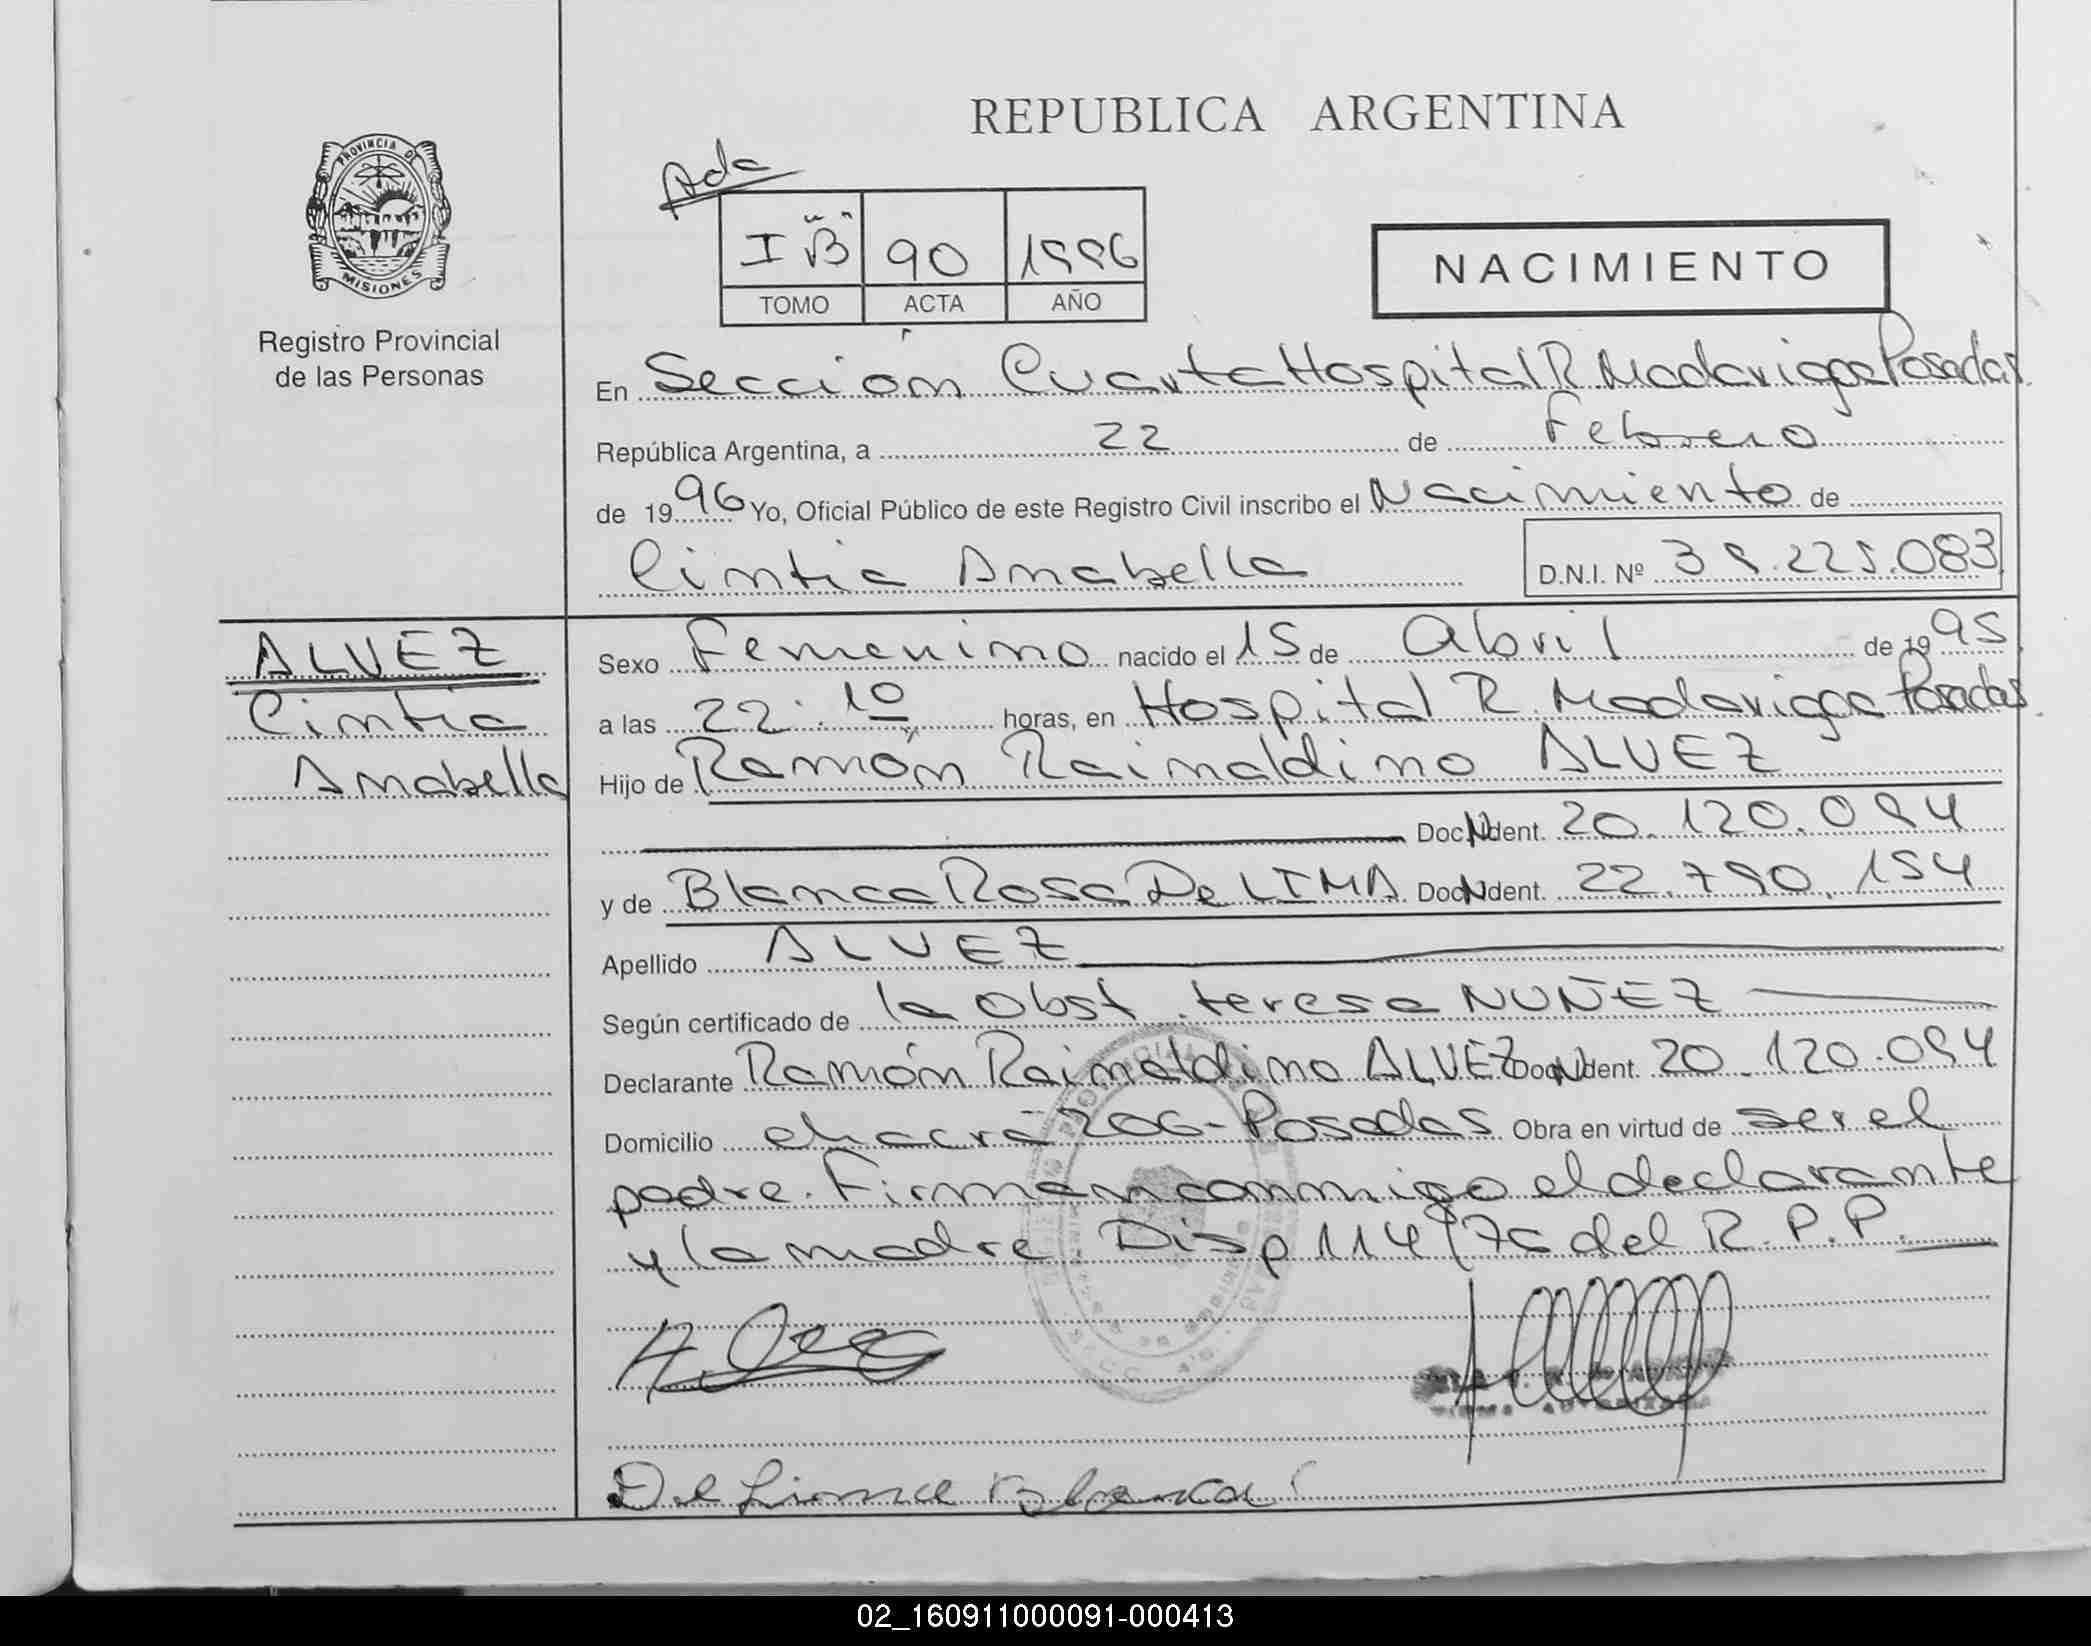 REPUBLICA ARGENTINA
PROVINCIA DE MISIONES
Registro Provincial
de las Personas
Ada
I "B" 90 1996
TOMO ACTA AÑO
NACIMIENTO
En Sección Cuarta Hospital R. Madariaga Posadas
República Argentina, a 22 de Febrero
de 1996 Yo, Oficial Público de este Registro Civil inscribo el Nacimiento de
Cintia Anabella D.N.I. Nº 39.225.083
ALVEZ
Cintia
Anabella
Sexo Femenino nacido el 15 de Abril de 1995
a las 22:10 horas, en Hospital R. Madariaga Posadas
Hijo de Ramón Rainaldino ALVEZ
Doc. Ident. 20.120.094
y de Blanca Rosa De LIMA Doc. Ident. 22.790.154
Apellido ALVEZ
Según certificado de la Obst. teresa NUÑEZ
Declarante Ramón Rainaldino ALVEZ Doc. Ident. 20.120.094
Domicilio chacra 206-Posadas Obra en virtud de ser el
padre. Firman conmigo el declarante
y la madre. Disp 114/76 del R.P.P.
De Lima Blanca
02_160911000091-000413